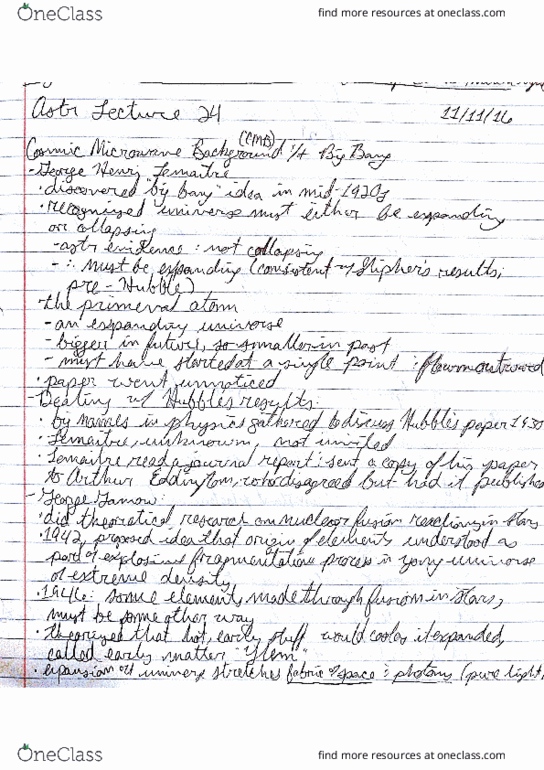 OneClass
find more resources at oneclass.com
Astr Lecture 24
11/11/16
(CMB)
Cosmic Microwave Background / + Big Bang
- George Henri Lemaitre
• discovered "big bang" idea in mid-1920s
• recognized universe must either be expanding
or collapsing
- astr evidence : not collapsing
- ∴ must be expanding (consistent w/ Slipher's results,
pre-Hubble)
• the primeval atom
- an expanding universe
- bigger in future, so smaller in past
- must have started at a single point : flow outward
• paper went unnoticed
- Dealing w/ Hubble's results:
• big names in physics gathered to discuss Hubble's paper 1930
• Lemaitre, unknown, not invited
• Lemaitre read a journal report : sent a copy of his paper
to Arthur Eddington, who disagreed but had it published
- George Gamow:
• did theoretical research on nuclear fusion reactions in stars
• 1942, proposed idea that origin of elements understood as
part of explosive fragmentation process in young universe
of extreme density
• 1946: some elements made through fusion in stars,
must be some other way
• theorized that hot, early stuff would cool as it expanded,
called early matter "Ylem"
• expansion of universe stretches fabric of space : photons (pure light,
OneClass
find more resources at oneclass.com